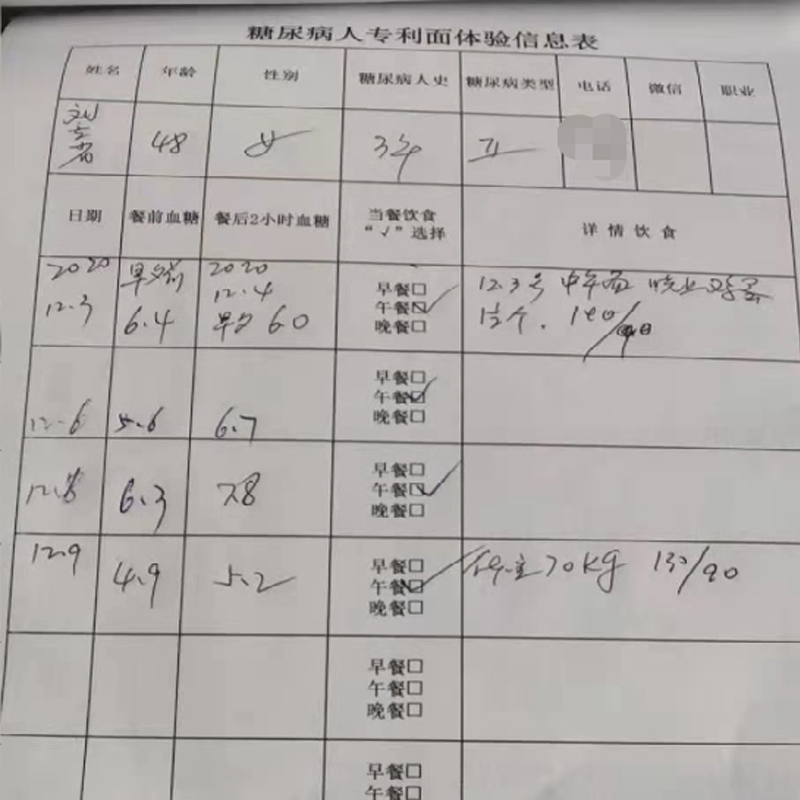 糖尿病人专利面体验信息表
姓名 年龄 性别 糖尿病人史 糖尿病类型 电话 微信 职业
48 女 3年 II
日期 餐前血糖 餐后2小时血糖 当餐饮食 详情饮食
“√”选择
2020 早 2020 早餐□ 12.3号 中午面 晚上
12.3 6.4 12.4 午餐□√ 个. 140/
早 6.0 晚餐□
早餐□
12.6 5.6 6.7 午餐□√
晚餐□
早餐□
12.8 6.3 7.8 午餐□√
晚餐□
12.9 4.9 5.2 早餐□ 体重70kg 130/90
午餐□√
晚餐□
早餐□
午餐□
晚餐□
早餐□
午餐□